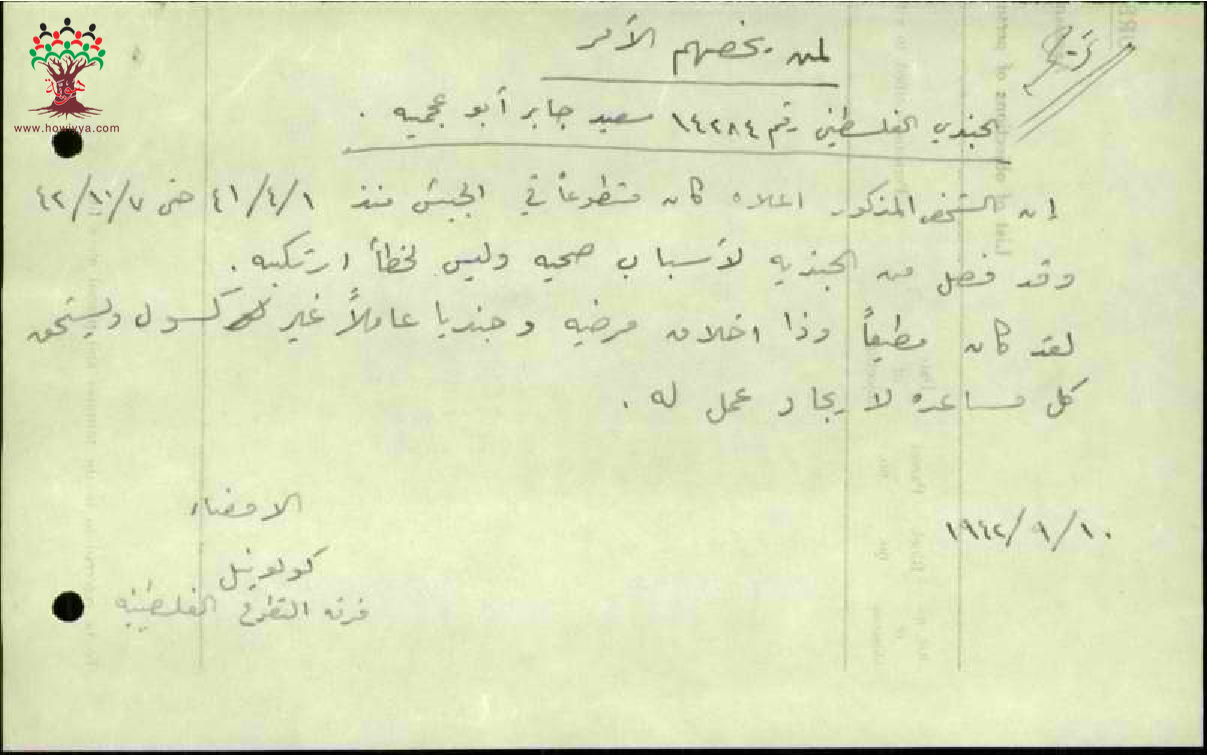 لمن يخصهم الأمر
الجندي الفلسطيني رقم ١٤٢٨٤ سعيد جابر أبو عجميه .
إن الشخص المذكور اعلاه كان متطوعاً في الجيش منذ ٤١/٤/١ حتى ٤٢/١١/٧
وقد فصل من الجنديه لأسباب صحيه وليس لخطأ ارتكبه .
لقد كان مطيعاً وذا اخلاق مرضيه وجنديا عاملاً غير كسول ويستحق
كل مساعده لايجاد عمل له .
الامضاء
١٩٤٢/٩/١٠
كولونيل
فرقه التطوع الفلسطينيه
هوية
www.howiyya.com